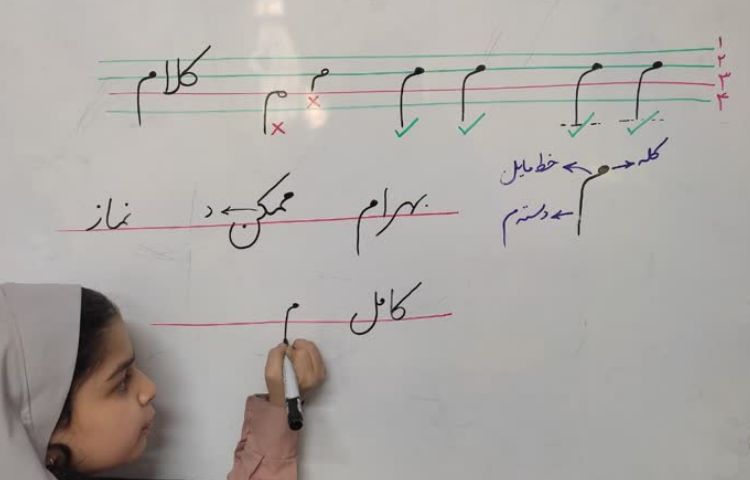 ۱
۲
۳
۴
م م م م م م کلام
کله
خط مایل
دسته م
بهرام ممکن د نماز
کامل م